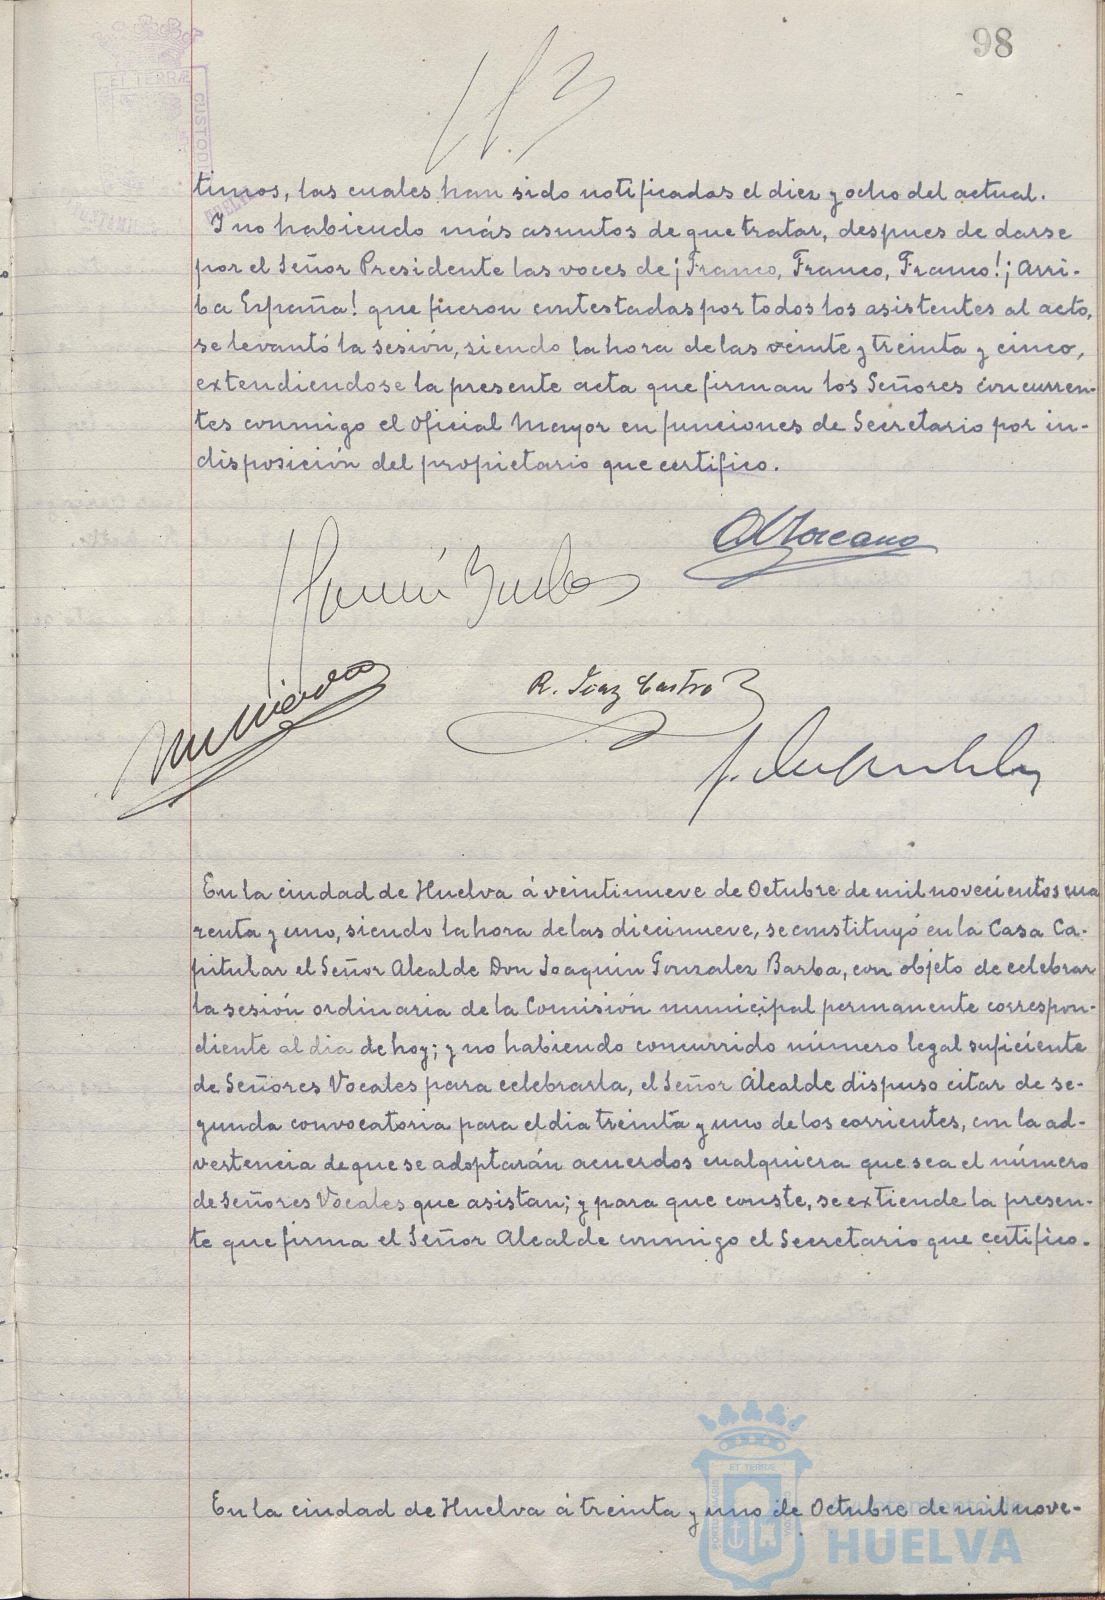 98
ET TERRÆ
CUSTODI
timos, las cuales han sido notificadas el diez y ocho del actual.
Y no habiendo más asuntos de que tratar, despues de darse
por el Señor Presidente las voces de ¡Franco, Franco, Franco! ¡Arri-
ba España! que fueron contestadas por todos los asistentes al acto,
se levantó la sesión, siendo la hora de las veinte y treinta y cinco,
extendiendose la presente acta que firman los Señores concurren-
tes conmigo el Oficial Mayor en funciones de Secretario por in-
disposición del propietario que certifico.
R. Diaz Castro
En la ciudad de Huelva á veintinueve de Octubre de mil novecientos cua
renta y uno, siendo la hora de las diecinueve, se constituyó en la Casa Ca-
pitular el Señor Alcalde Don Joaquín Gonzalez Barba, con objeto de celebrar
la sesión ordinaria de la Comisión municipal permanente correspon-
diente al dia de hoy; y no habiendo concurrido número legal suficiente
de Señores Vocales para celebrarla, el Señor Alcalde dispuso citar de se-
gunda convocatoria para el dia treinta y uno de los corrientes, con la ad-
vertencia de que se adoptarán acuerdos cualquiera que sea el número
de Señores Vocales que asistan; y para que conste, se extiende la presen-
te que firma el Señor Alcalde conmigo el Secretario que certifico.
En la ciudad de Huelva á treinta y uno de Octubre de mil nove-
ET TERRÆ
HUELVA